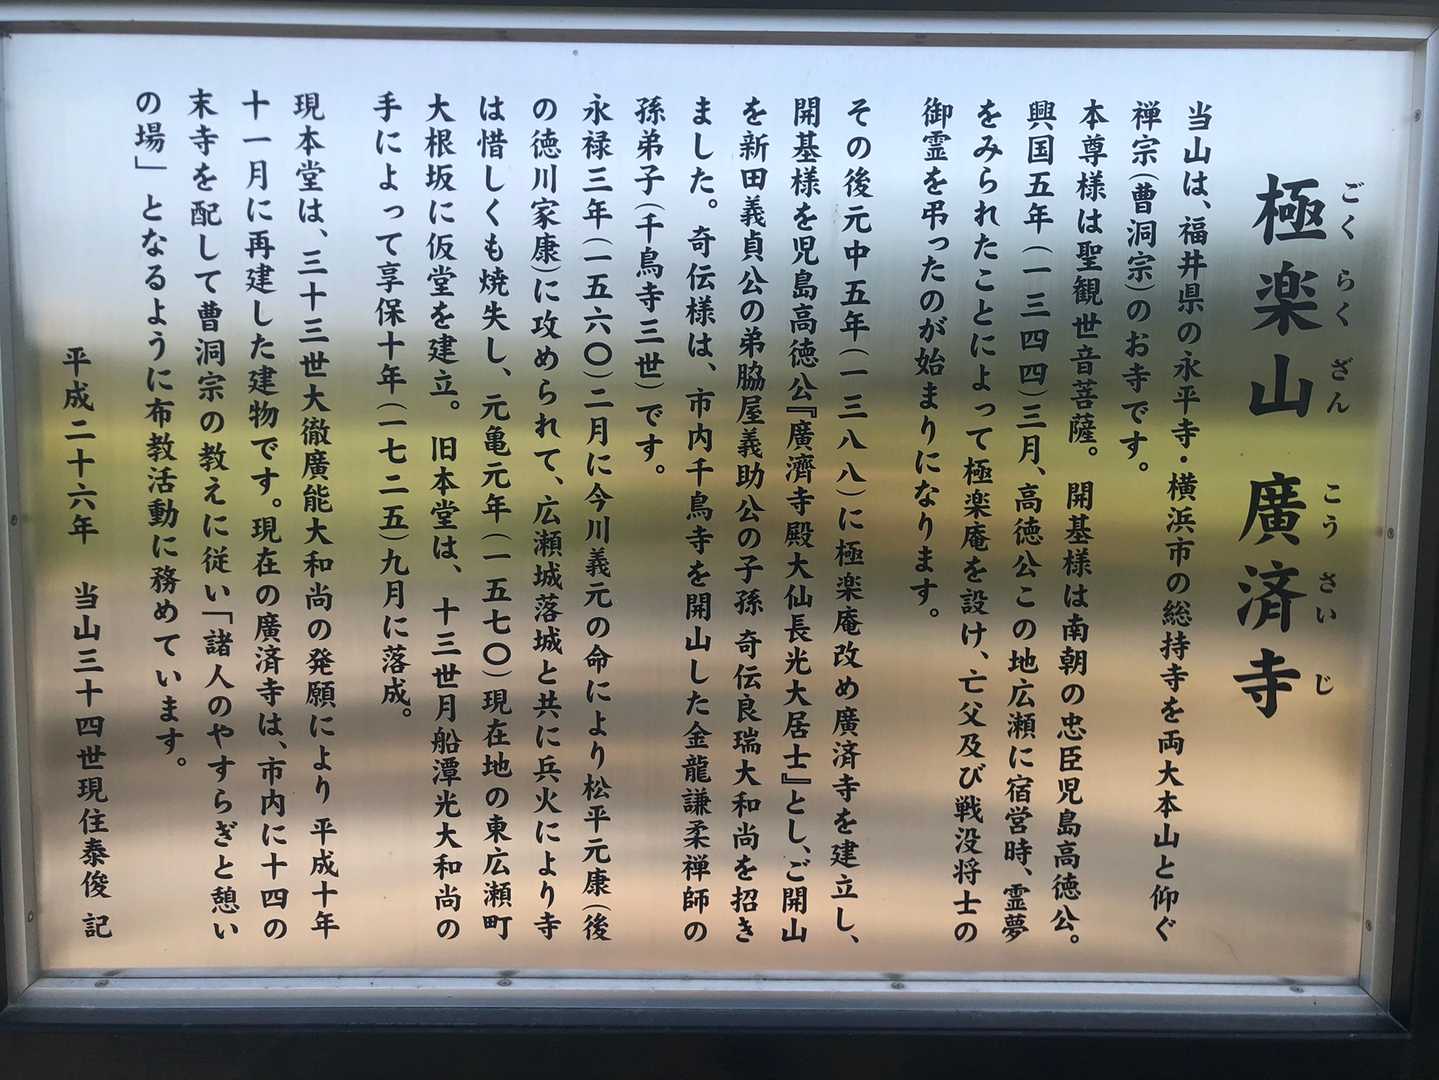 極楽山 廣済寺
ごくらくざん こうさいじ
当山は、福井県の永平寺・横浜市の総持寺を両大本山と仰ぐ
禅宗(曹洞宗)のお寺です。
本尊様は聖観世音菩薩。開基様は南朝の忠臣児島高徳公。
興国五年(一三四四)三月、高徳公この地広瀬に宿営時、霊夢
をみられたことによって極楽庵を設け、亡父及び戦没将士の
御霊を弔ったのが始まりになります。
その後元中五年(一三八八)に極楽庵改め廣済寺を建立し、
開基様を児島高徳公『廣濟寺殿大仙長光大居士』とし、ご開山
を新田義貞公の弟脇屋義助公の子孫 奇伝良瑞大和尚を招き
ました。奇伝様は、市内千鳥寺を開山した金龍謙柔禅師の
孫弟子(千鳥寺三世)です。
永禄三年(一五六〇)二月に今川義元の命により松平元康(後
の徳川家康)に攻められて、広瀬城落城と共に兵火により寺
は惜しくも焼失し、元亀元年(一五七〇)現在地の東広瀬町
大根坂に仮堂を建立。旧本堂は、十三世月船潭光大和尚の
手によって享保十年(一七二五)九月に落成。
現本堂は、三十三世大徹廣能大和尚の発願により 平成十年
十一月に再建した建物です。現在の廣済寺は、市内に十四の
末寺を配して曹洞宗の教えに従い「諸人のやすらぎと憩い
の場」となるように布教活動に務めています。
平成二十六年 当山三十四世現住泰俊 記